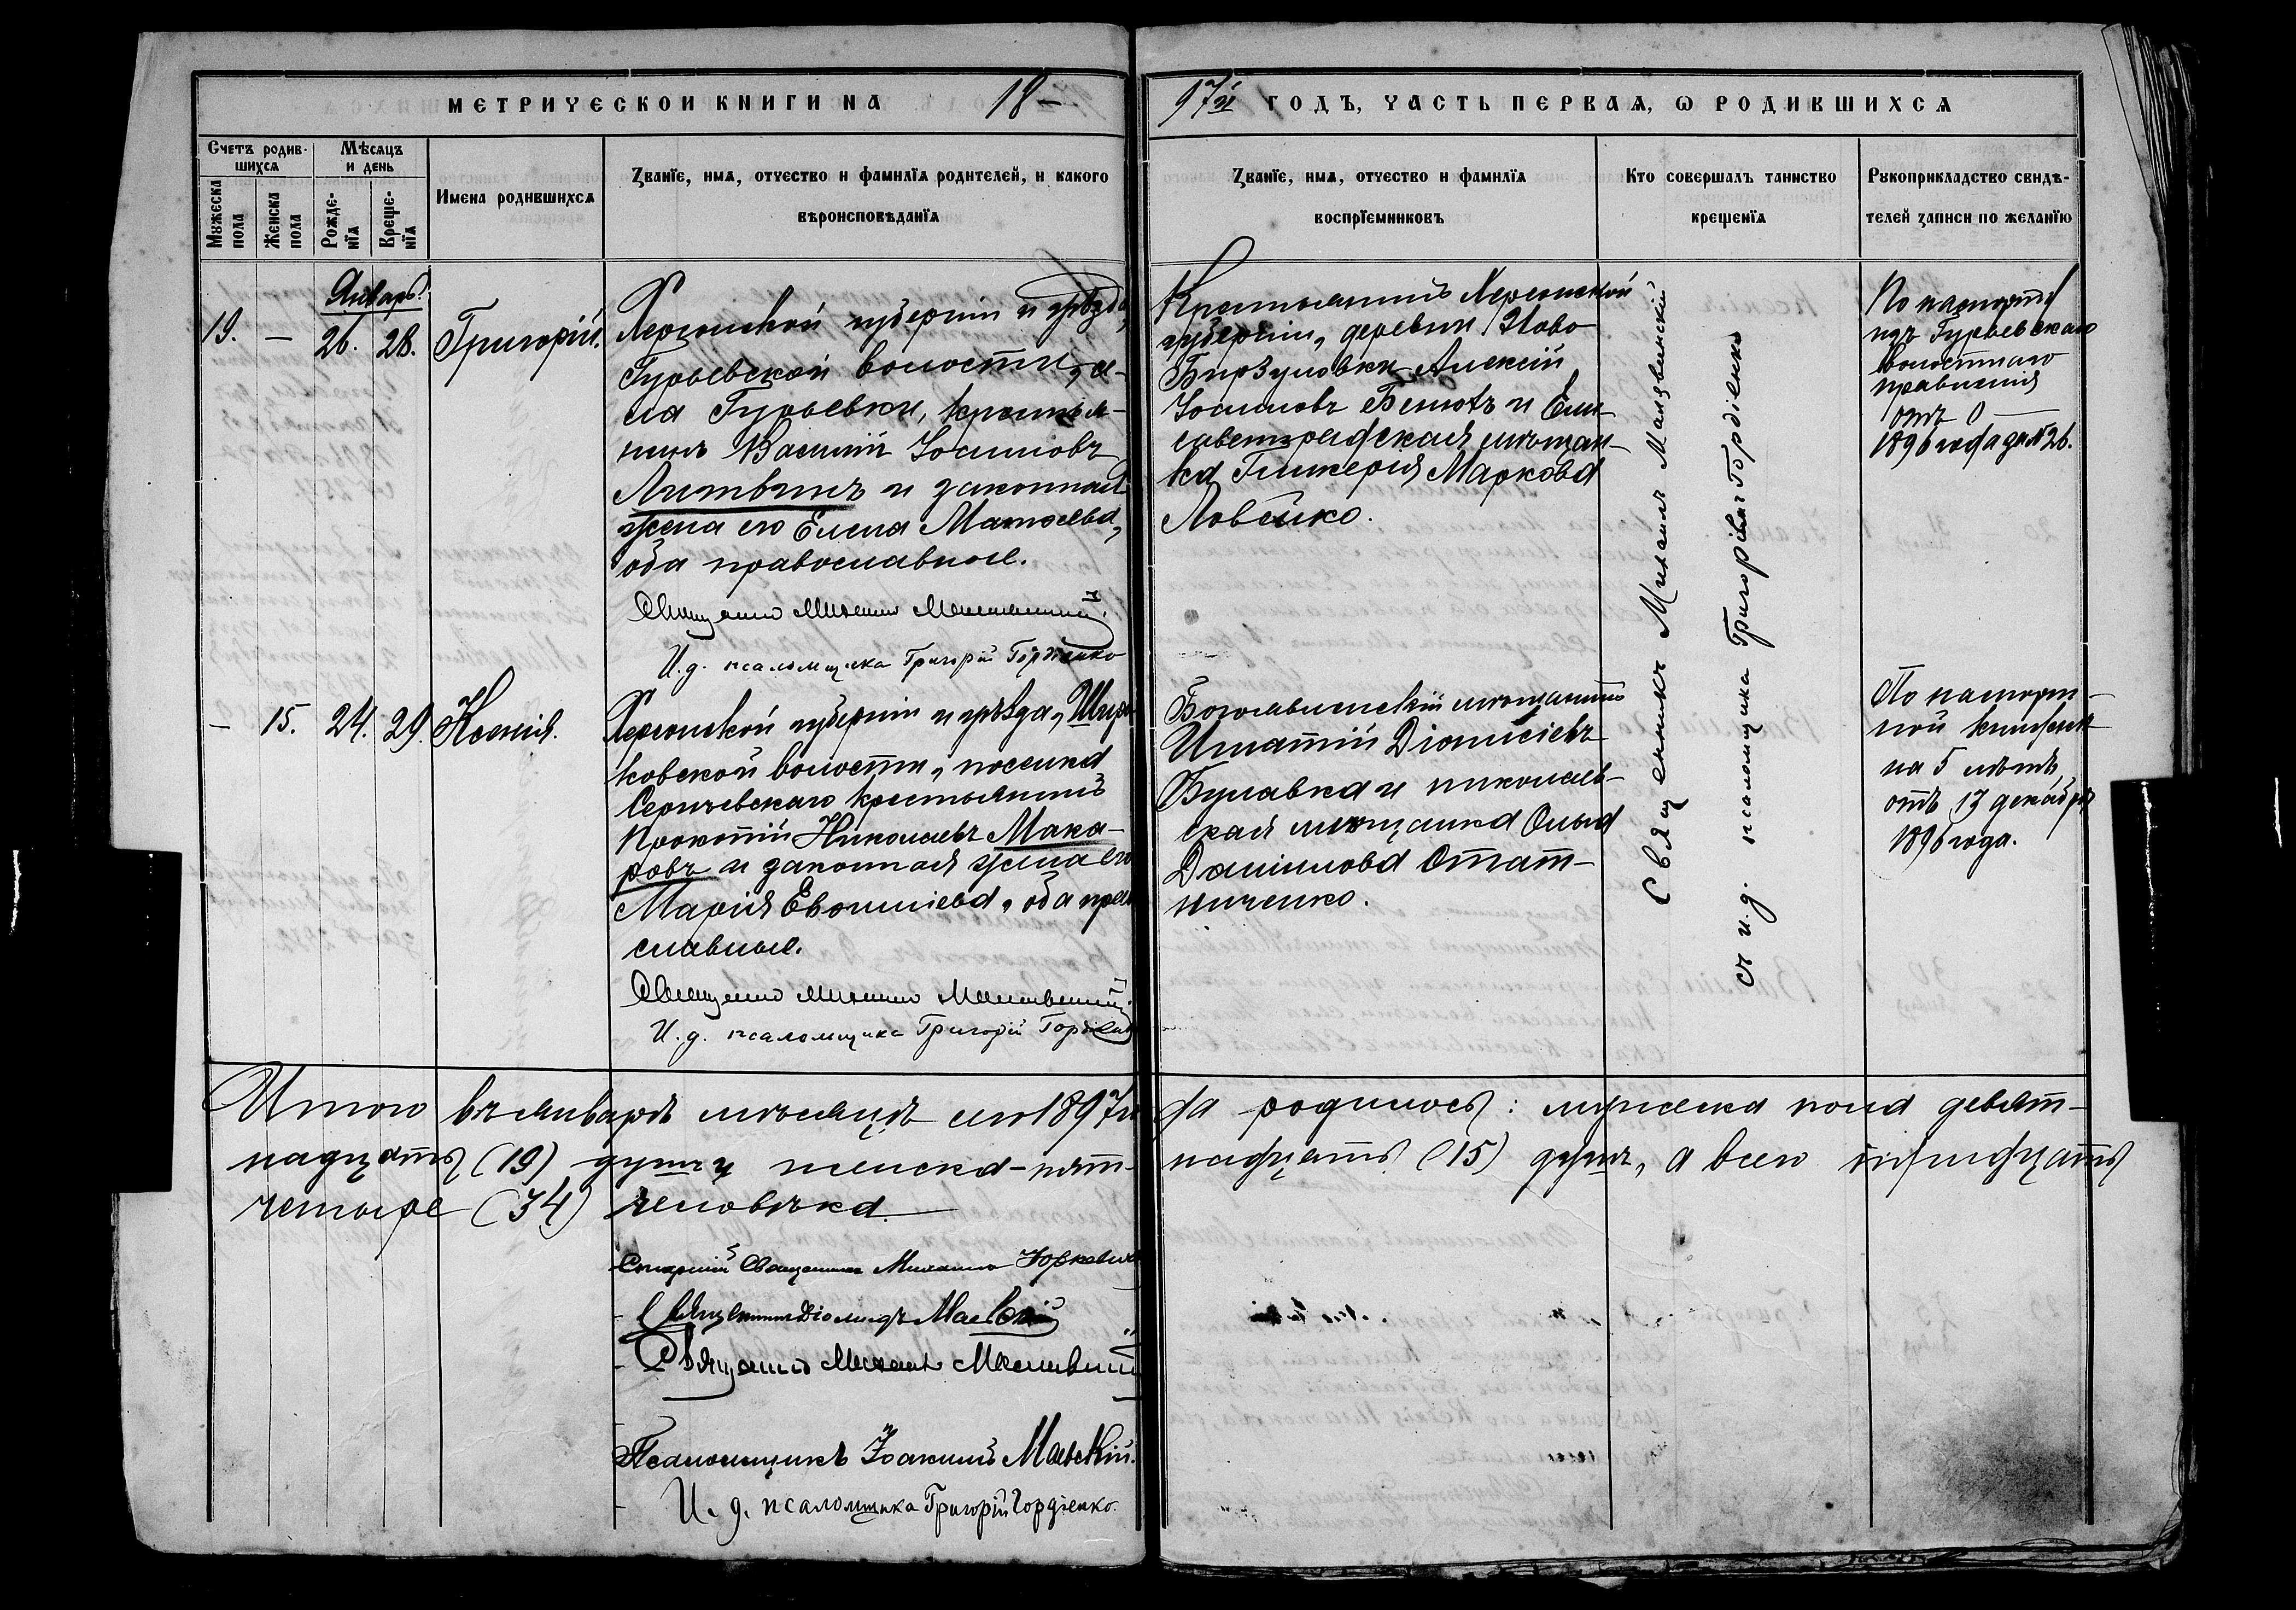 МЕТРИЧЕСКОЙ КНИГИ НА 18–97й ГОДЪ, ЧАСТЬ ПЕРВАЯ, О РОДИВШИХСЯ
Счетъ родившихся
Мужеска пола
Женска пола
Мѣсяцъ и день
Рожденїя
Крещенїя
Имена родившихся
Званїе, имя, отчество и фамилїя родителей, и какого
вѣроисповѣданїя
Званїе, имя, отчество и фамилїя
воспрїемниковъ
Кто совершалъ таинство
крещенїя
Рукоприкладство свидѣ-
телей записи по желанїю
Январь.
19. — 26. 28. Григорій.
Херсонской губерніи и уѣзда,
Гурьевской волости, се-
ла Гурьевки, крестья-
нинъ Василій Іосифовъ
Литвинъ и законная
жена его Елена Матѳеева,
оба православные.
Священникъ Михаилъ
И. д. псаломщика Григорій Гордіенко
Крестьянинъ Херсонской
губерніи, деревни Ново
Бирзуловки Алексій
Іосифовъ и Ели-
саветградская мѣщан-
ка Гликерія Маркова
Ловейко.
По паспорту
изъ Гурьевскаго
волостного
правленія
отъ 0 —
1896 года за № 26.
— 15. 24. 29. Ксенія.
Херсонской губерніи и уѣзда, Широ-
ковской волости, поселка
Сергѣевскаго крестьянинъ
Прокопій Николаевъ Мака-
ровъ и законная жена его
Марія, оба право-
славные.
Священникъ Михаилъ
И. д. псаломщика Григорій Гордіенко
мѣщанинъ
Игнатій Діонисіевъ
Булавка и николаев-
ская мѣщанка Ольга
Даніилова
По паспорт-
ной книжкѣ
на 5 лѣтъ
отъ 13 декабря
1896 года.
Священникъ Михаилъ
съ и. д. псаломщика Григоріемъ Гордіенко
Итого въ январѣ мѣсяцѣ сего 1897 го-
да родилось: мужеска пола девят-
надцать (19) душъ и женска – пят-
надцать (15) душъ, а всего тридцать
четыре (34) человѣка.
Священникъ Михаилъ Юркевичъ
Священникъ Діомидъ Маевскій
Священникъ Михаилъ
Псаломщикъ Іоакимъ Маевскій.
И. д. псаломщика Григорій Гордіенко.